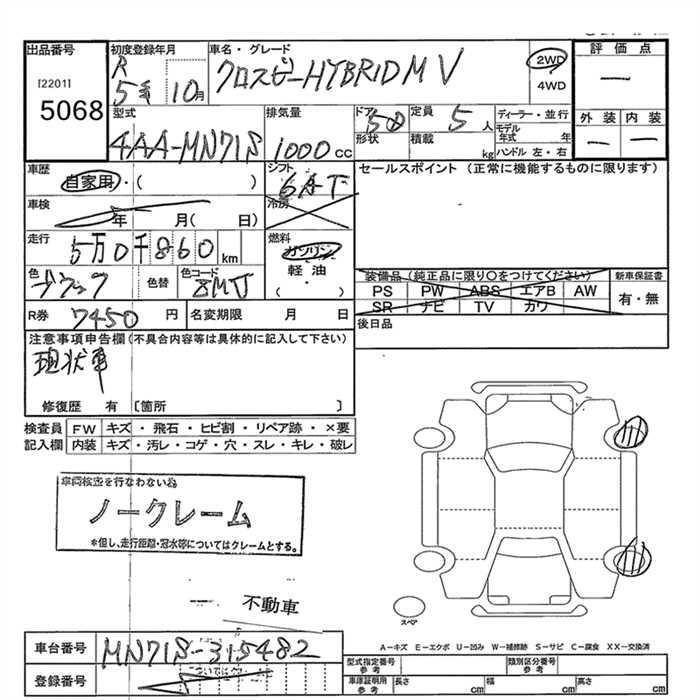 出品番号
[2201]
5068
初度登録年月
R 5年 10月
車名・グレード
クロスビーHYBRID MV
2WD
4WD
評価点
—
外装 内装
— —
型式
4AA-MN71S
排気量
1000 cc
ドア 5
形状
定員 5 人
積載 kg
ディーラー・並行
モデル年式 年
ハンドル 左・右
車歴
自家用・( )
シフト
6AT
冷房
セールスポイント (正常に機能するものに限ります)
車検
年 月( 日)
走行
5万0千860km
燃料
ガソリン
軽油
( ・ )
色
ブラック
色替
色コード
ZMJ
装備品 (純正品に限り○をつけてください)
PS PW ABS エアB AW
SR ナビ TV カワ
新車保証書
有・無
R券 7450 円
名変期限 月 日
後日品
注意事項申告欄(不具合内容等は具体的に記入して下さい)
現状車
修復歴 有 〔箇所 〕
検査員 FW キズ・飛石・ヒビ割・リペア跡・×要
記入欄 内装 キズ・汚レ・コゲ・穴・スレ・キレ・破レ
車両検査を行なわない為
ノークレーム
*但し、走行距離・冠水等についてはクレームとする。
不動車
スペア
A－キズ E－エクボ U－凹み W－補修跡 S－サビ C－腐食 XX－交換済
車台番号 MN71S-315482
登録番号
型式指定番号
参考
類別区分番号
参考
車庫証明用
参考
長さ cm 幅 cm 高さ cm